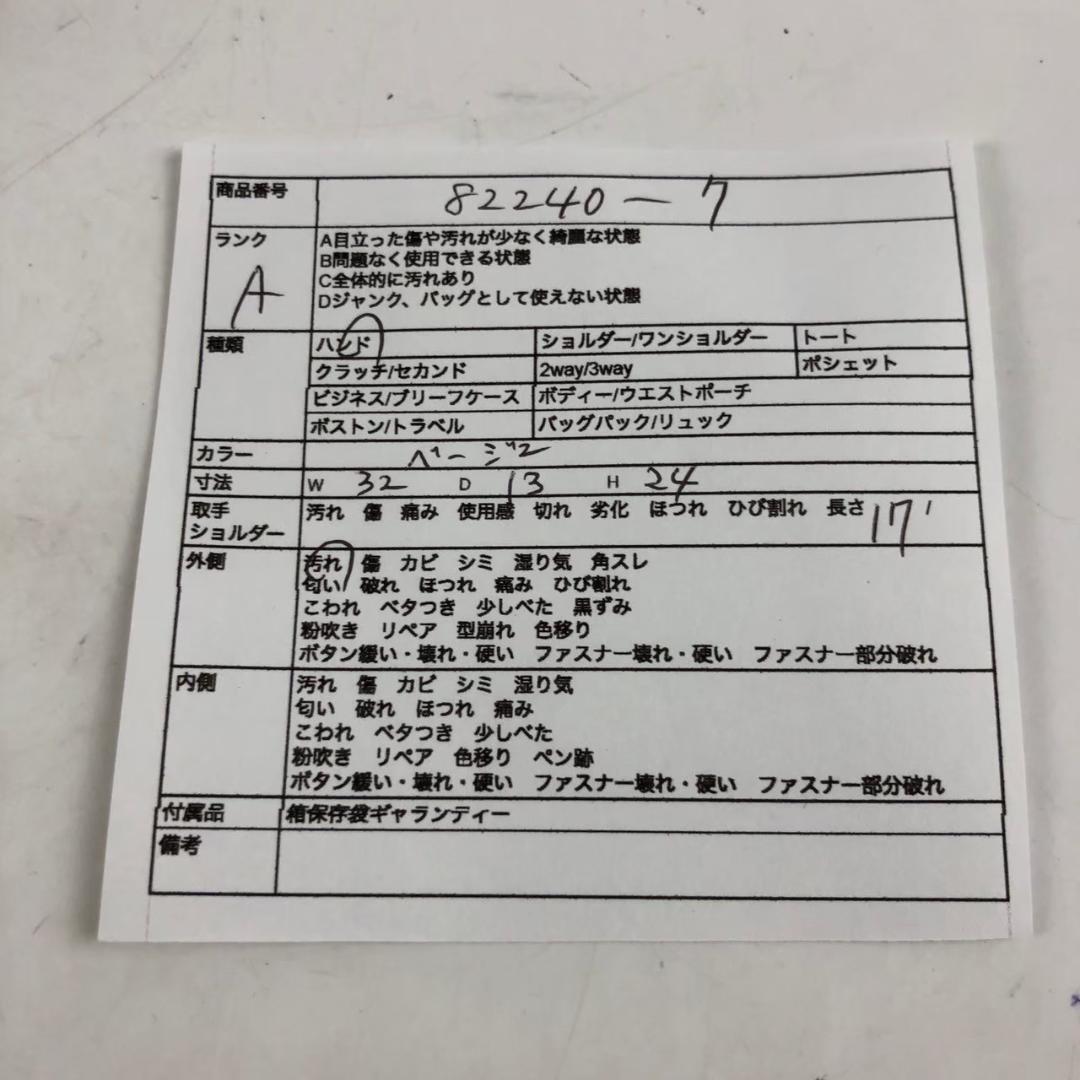 商品番号 82240-7
ランク A
A目立った傷や汚れが少なく綺麗な状態
B問題なく使用できる状態
C全体的に汚れあり
Dジャンク、バッグとして使えない状態
種類 ハンド ショルダー/ワンショルダー トート
クラッチ/セカンド 2way/3way ポシェット
ビジネス/ブリーフケース ボディー/ウエストポーチ
ボストン/トラベル バッグパック/リュック
カラー ベージュ
寸法 W 32 D 13 H 24
取手 汚れ 傷 痛み 使用感 切れ 劣化 ほつれ ひび割れ 長さ 17
ショルダー
外側 汚れ 傷 カビ シミ 湿り気 角スレ
匂い 破れ ほつれ 痛み ひび割れ
こわれ ベタつき 少しべた 黒ずみ
粉吹き リペア 型崩れ 色移り
ボタン緩い・壊れ・硬い ファスナー壊れ・硬い ファスナー部分破れ
内側 汚れ 傷 カビ シミ 湿り気
匂い 破れ ほつれ 痛み
こわれ ベタつき 少しべた
粉吹き リペア 色移り ペン跡
ボタン緩い・壊れ・硬い ファスナー壊れ・硬い ファスナー部分破れ
付属品 箱保存袋ギャランティー
備考